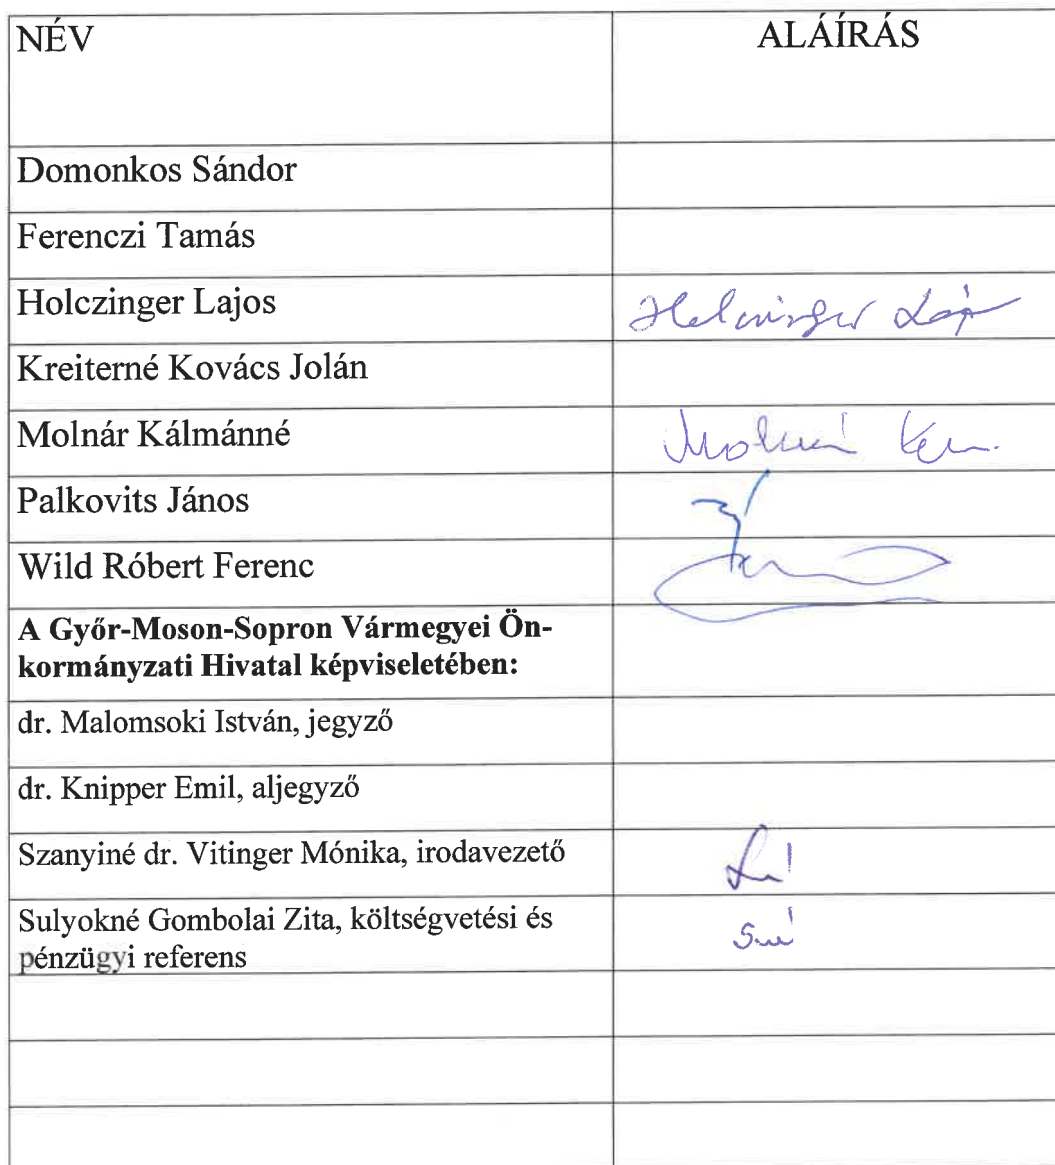 NÉV ALÁÍRÁS
Domonkos Sándor
Ferenczi Tamás
Holczinger Lajos
Kreiterné Kovács Jolán
Molnár Kálmánné
Palkovits János
Wild Róbert Ferenc
A Győr-Moson-Sopron Vármegyei Ön-
kormányzati Hivatal képviseletében:
dr. Malomsoki István, jegyző
dr. Knipper Emil, aljegyző
Szanyiné dr. Vitinger Mónika, irodavezető
Sulyokné Gombolai Zita, költségvetési és
pénzügyi referens